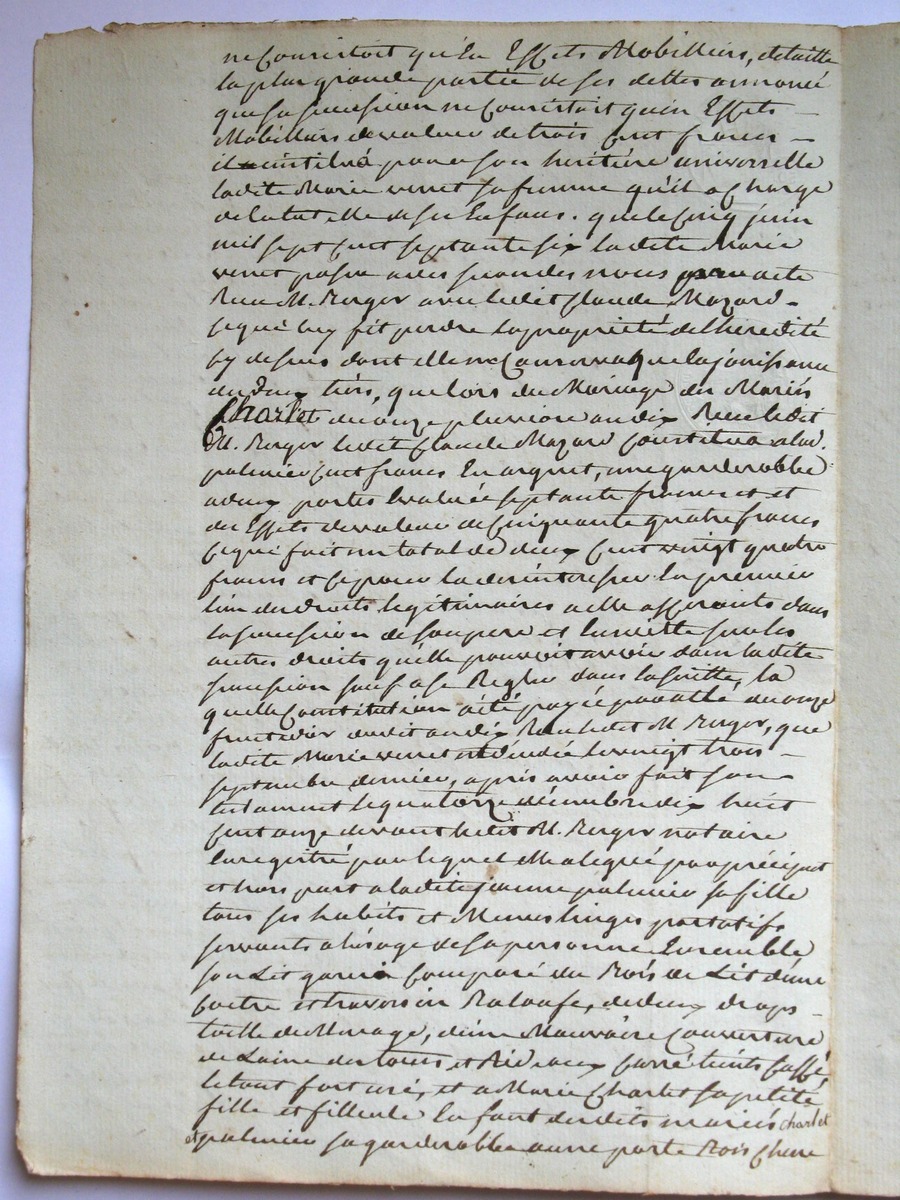 ne Consistoit qu'En Effets Mobilliers, detaille
la plus grande partie de ses dettes annoncé
que sa succession ne Consistoit quin Effets
Mobilliers de valeur de trois Cent francs
il institua pour son heritière universelle
ladite Marie venet sa femme qu'il a Chargé
de la tutelle de ses Enfans. que le Cinq juin
mil sept Cent septante six ladite Marie
venet passa a des secondes noces par acte
Reçu M. Roger avec ledit Claude Mozard
ce qui luy fit perdre la propriété de l'heredité
cy dessus dont elle ne Conserva que la jouissance
que lors du Mariage des Mariés
Charlet du onze pluviose an dix Reçu ledit
M. Roger ledit Claude Mozard Constitua a lad.
palmier Cent francs En argent, une garderobbe
a deux portes Evaluée septante francs et et
des Effets de valeur de Cinquante quatre francs
Ce qui fait un total de deux Cent vingt quatre
francs et Ce pour la desinteresser En premier
lieu des droits legitimaires a elle afferants dans
la succession de son pere et Ensuitte sur les
autres droits qu'elle pouvoit avoir dans ladite
succession sauf a se Regler dans la suitte, la
quelle Constitution a été payée par acte du onze
fructidor dudit an dix Reçu ledit M. Roger, que
ladite Marie venet est décédée le vingt trois
septembre dernier, après avoir fait son
testament le quatorze décembre dix huit
Cent onze devant ledit M. Roger notaire
Enregistré par lequel Elle a legué par préciput
et hors part a ladite jeanne palmier sa fille
tous ses habits et Menus linges portatifs
servants a l'usage de sa personne Ensemble
son Lit garni Composé du Bois de Lit d'une
Coetre et traversin de deux draps
toille de Menage, d'une Mauvaise Couverture
de Laine des tours et Rideaux teints
le tout fort usé, et a Marie Charlet sa petite
fille et filleule Enfant desdits mariés charlet
et palmier sa garderobbe a une porte Bois Chene